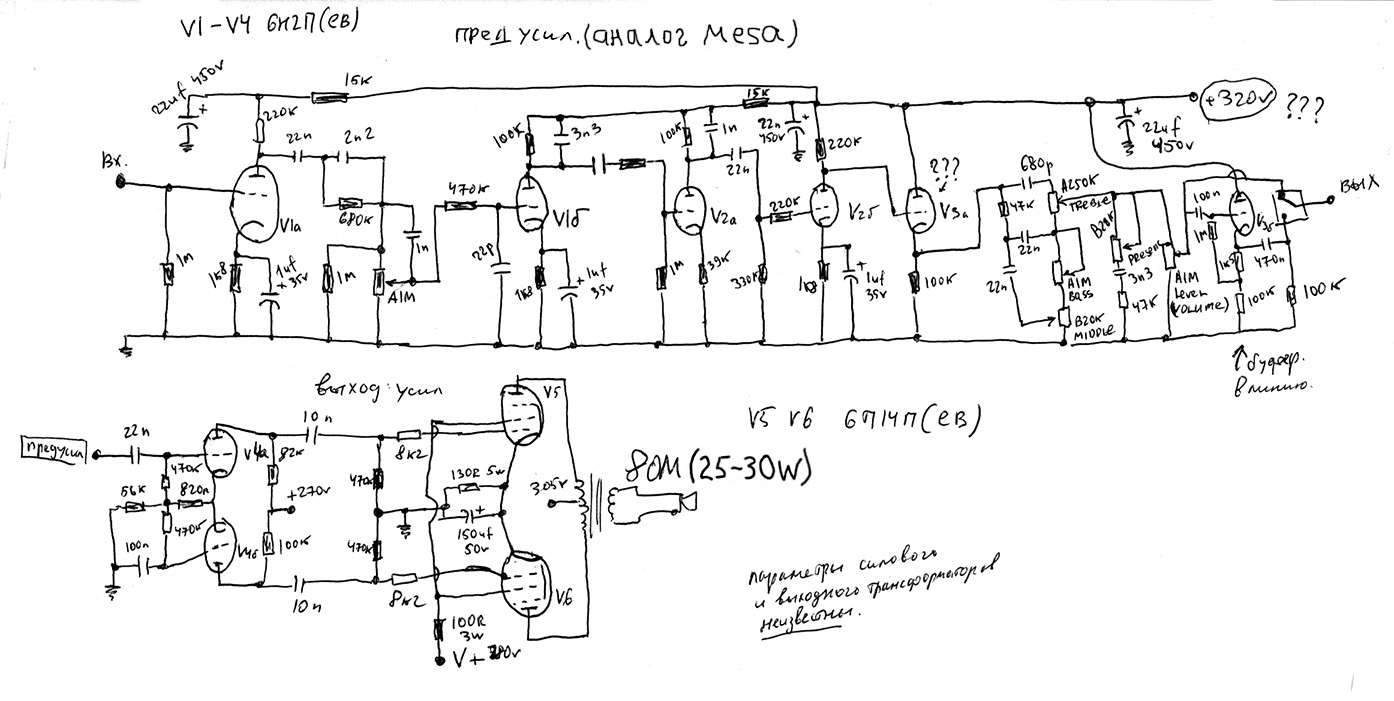 V1-V4 6Н2П(ЕВ)
ПРЕДУСИЛ.(АНАЛОГ MESA)
22uf 450v
+
220K
15K
22n
2n2
Вх.
V1a
680K
1n
1M
1K8
1uf
+ 35v
1M
A1M
470K
22p
100K
3n3
V1б
1K8
+
1uf
35v
100K
1n
15K
22n
V2a
1M
39K
22n
450v
+
220K
220K
V2б
330K
1K8
+
1uf
35v
???
V3a
100K
+320v
???
+
22uf
450v
680p
A250K
TREBLE
47K
22n
22n
A1M
BASS
B20K
MIDDLE
B20K
PRESENS
3n3
47K
A1M
LEVEL
(VOLUME)
100n
1M
V3б
1K5
470n
100K
100K
ВЫХ
буфер.
в линию.
ВЫХОД: УСИЛ
ПРЕДУСИЛ
22n
V4a
10n
82K
470K
56K
820n
470K
100n
V4б
+270v
100K
10n
8K2
470K
470K
8K2
130R 5w
+
150uf
50v
V5
V6
305v
100R
3w
V+
V5 V6 6П14П(ЕВ)
8ОМ(25-30W)
параметры силового
и выходного трансформаторов
неизвестны.